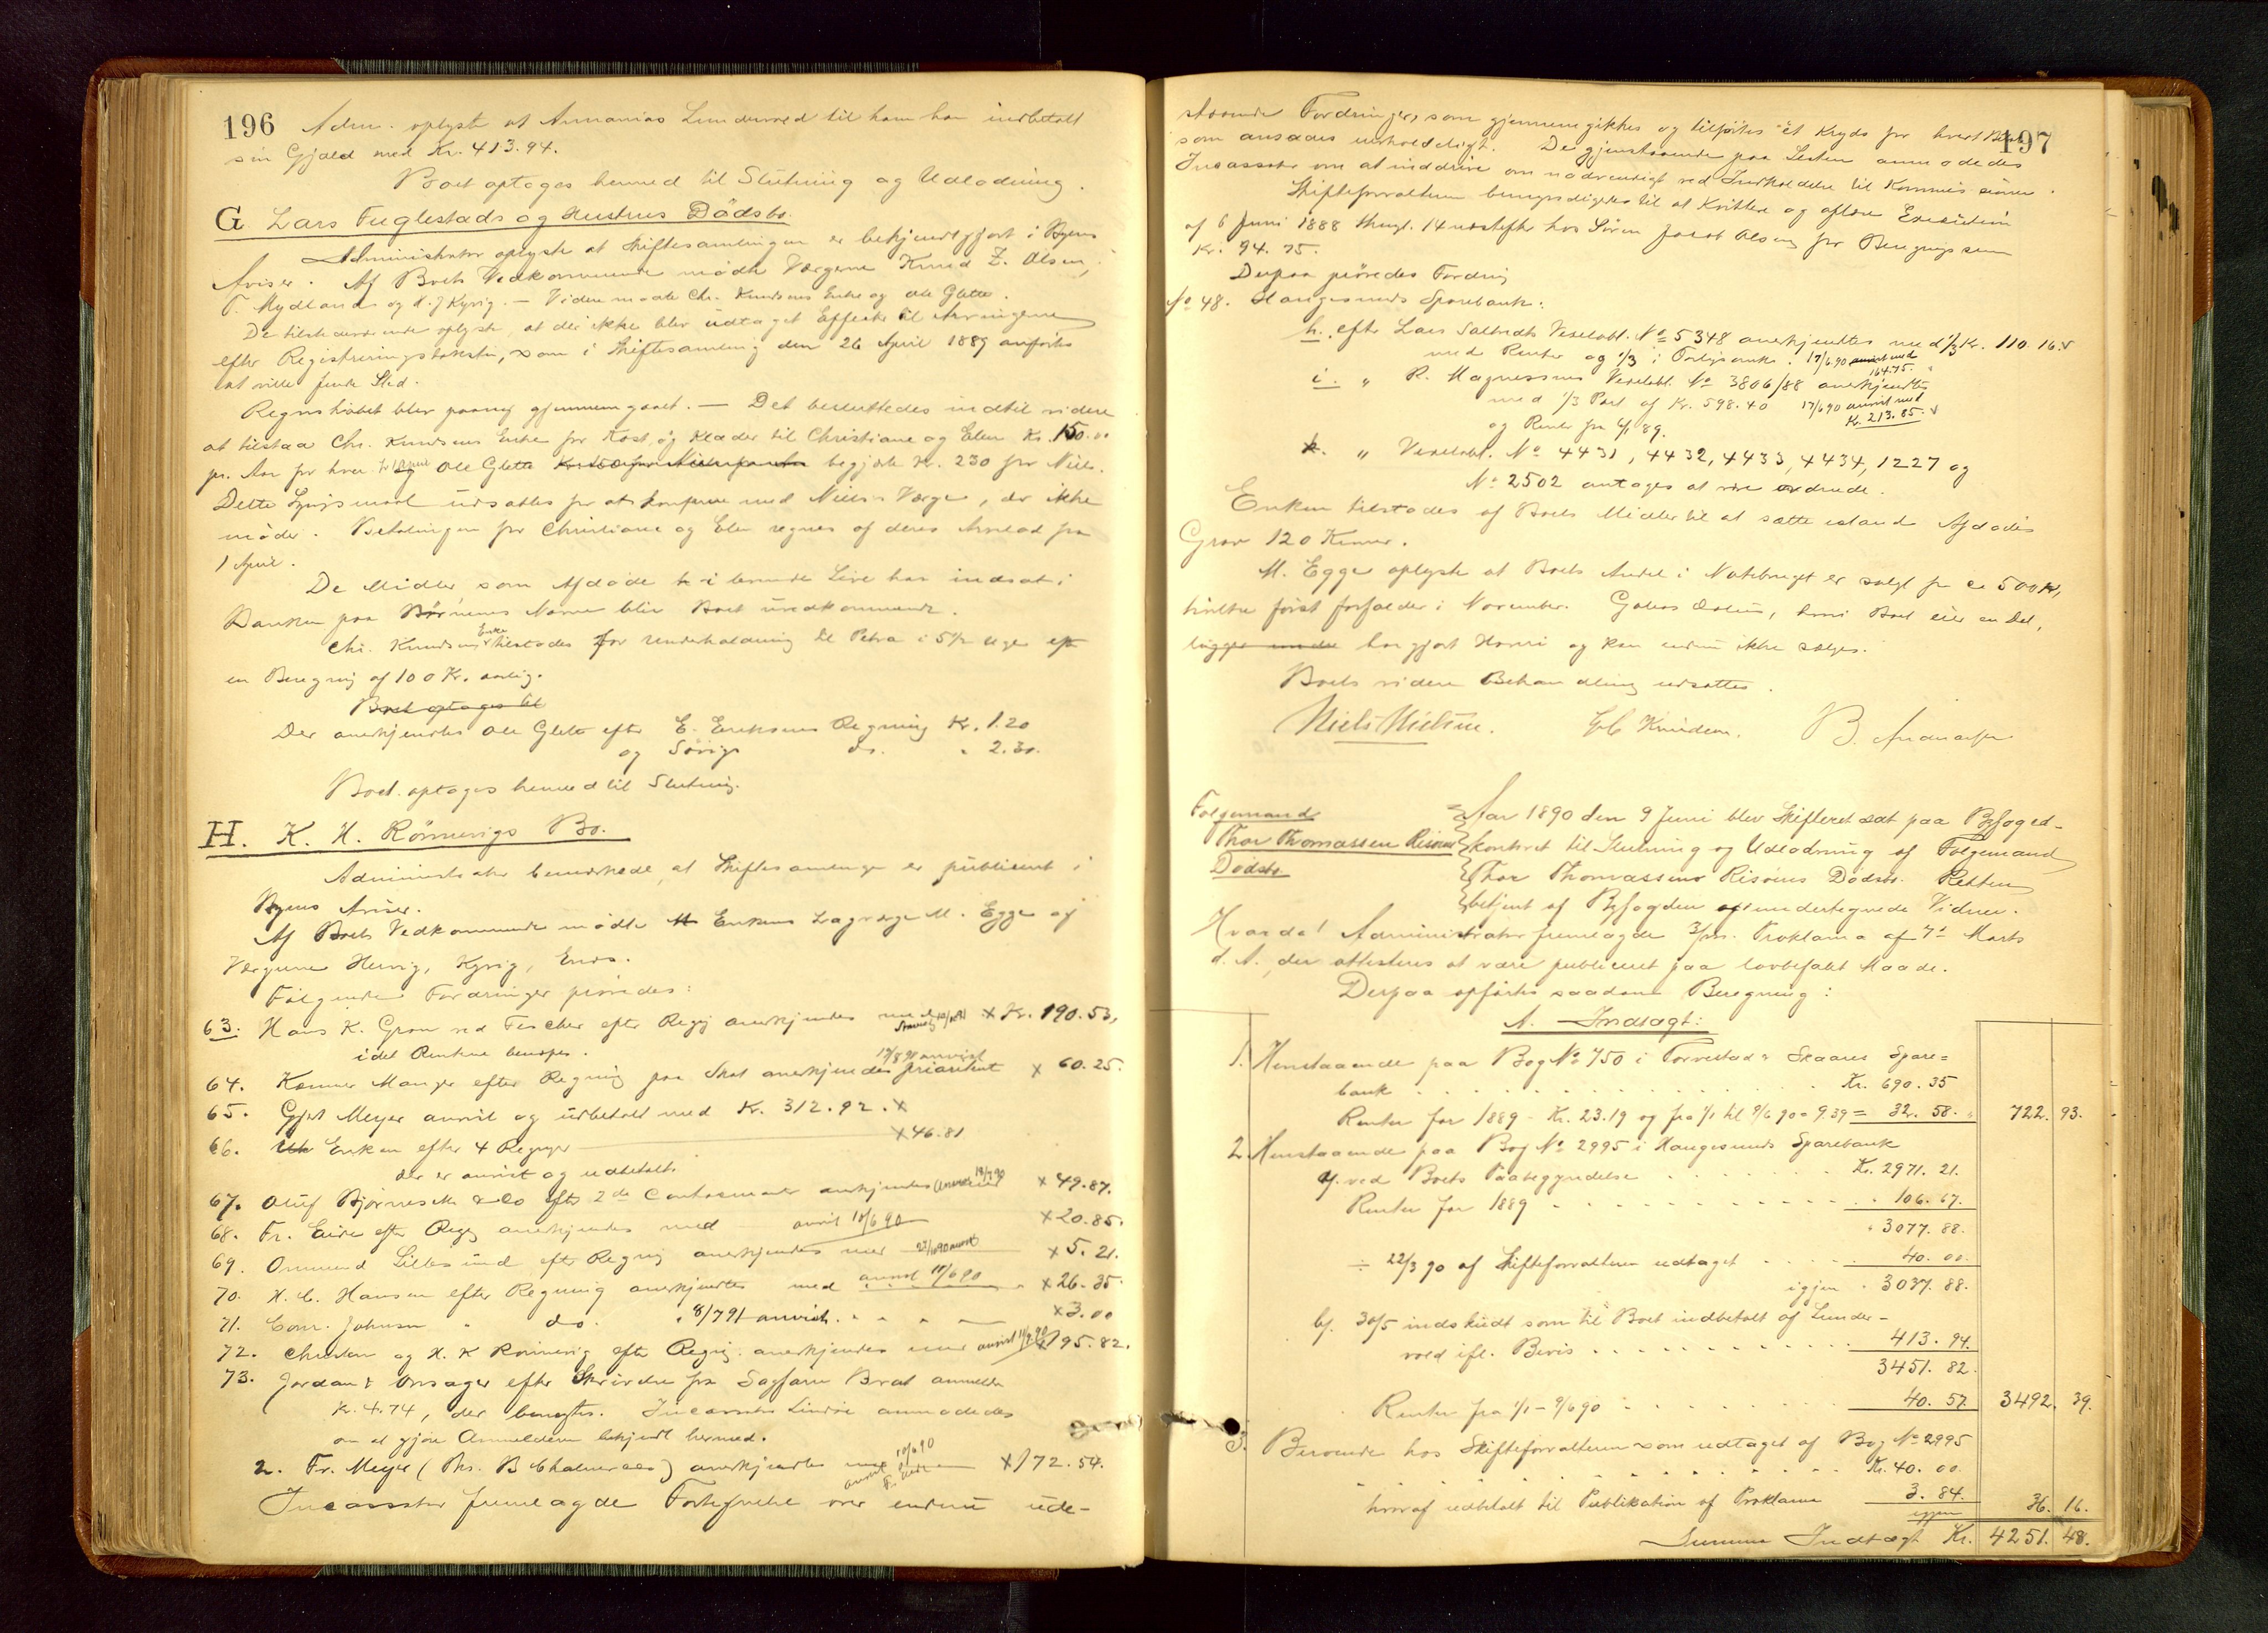 196
Adm. oplyste at Annanias Lundervold til ham har indbetalt
sin Gjæld med Kr. 413.94.
Boet optoges hermed til Slutning og Udlodning.
G Lars Fuglestads og Hustrus Dödsbo.
Administrator oplyste at Skiftesamlingen er bekjendtgjort i Byens
Aviser. Af Boets Vedkommende mödte Værgerne Knud Z. Olsen,
T. Mydland og H. J Kyvig. — Videre mödte Chr. Knudsens Enke og Ole Glette.
De tilstedeværende oplyste, at der ikke blev udtaget Effekter til Arvingerne
efter Registreringstaksten, som i Skiftesamling den 26 April 1889 anförtes
at ville finde Sted.
Regnskabet blev paany gjennemgaaet. — Det besluttedes indtil videre
at tilstaa Chr. Knudsens Enke for Kost og Klæder til Christiane og Elen Kr. 150.00
pr. Aar for hver fr 1 April og Ole Glette begjærte Kr. 230 for Niels.
Dette Spörgsmaal udsattes for at konferere med Niels's Værge, der ikke
möder. Betalingen for Christiane og Elen regnes af deres Arvelod fra
1 April.
De Midler, som Afdöde i levende Live har indsat i
Banken paa Börnenes Navne blir Boet uvedkommende.
Chr. Knudsens Enke tilstodes for Underholdning til Petra i 5½ Uger eft
en Beregning af 100 Kr. aarlig.
Boet optages til
Der anerkjendtes Ole Glette efter E. Eriksens Regning Kr. 1.20
og Sörigs do. " 2.30.
Boet optoges hermed til Slutning.
H. K. H. Rönnevigs Bo.
Administrator bemærkede, at Skiftesamlingen er publiceret i
Byens Aviser.
Af Boets Vedkommende mödte Enkens Lagværge M. Egge og
Værgerne Hervig, Kyvig, Enkes.
Fölgende Fordringer prövedes:
63. Hans K. Gron ved Fischer efter Regng anerkjendtes med x Kr. 190.53,
idet Renterne benegtes.
64. Kæmner Manger efter Regning paa Skat anerkjendes prioriteret x 60.25.
65. Gjert Meyer anvist og udbetalt med Kr. 312.92. x
66. Enken efter 4 Regnger x 46.81
der er anvist og udbetalt.
67. Oluf Björneseth & Co efter 2de Contocouranter anerkjendes x 49.87.
68. Fr. Eide efter Regng anerkjendes med anvist 10/6 90 x 20.85.
69. Ommund Lillesund eft Regning anerkjendes med x 5.21.
70. H. C. Hansen efter Regning anerkjendtes med anvist 11/6 90 x 26.35
71. Conr. Johnsen " do. " 8/7 91 anvist. x 3.00
72. Christen og H. K Rönnevig efter Regng. anerkjendes med x 195.82.
73. Jordan & Onsager efter Skrivelse fra Sagförer Brat anmeldte
Kr. 4.74, der benegtes. Incassator Lindöe anmodedes
om at gjöre Anmelderen bekjendt hermed.
2. Fr. Meyer (Prs. B Chalmeraas) anerkjendtes med x 172.54.
Incassator fremlagde Fortegnelse over endnu ude-
197
staaende Fordringer, som gjennemgikkes og tilföiedes et Kryds for hvert Belöb
som ansaaes uerholdeligt. De gjenstaaende paa Listen anmodedes
Incassator om at inddrive om nödvendigt ved Indkaldelse til Kommissionen.
Skifteforvalteren bemyndigedes til at kvittere og aflæse Execution
af 6 Juni 1888 thingl. 14 næstefter hos Sören Jacob Olsen for Beregngssum
Kr. 94.75.
Derpaa prövedes Fordring
No 48. Haugesunds Sparebank:
h. efter Lars Salbuchts Vexelobl. No 5348 anerkjendtes med ⅓ Kr. 110.16.
med Renter og ⅓ i Forligsomk. 17/6 90 anvist med
164.75.
i. " R. Magnessens Vexelobl. No 3806/88 anerkjendtes
med ⅓ Part af Kr. 598.40 17/6 90 anvist med
og Renter fra 4/1 89. Kr. 213.85.
k. " Vexelobl. No 4431, 4432, 4433, 4434, 1227 og
No 2502 antages at være ordnede.
Enken tilstodes af Boets Midler til at sætte istand Afdödes
Grav 120 Kroner.
M. Egge oplyste at Boets Andel i Notebruget er solgt for ca 500 Kr,
hvilke först forfalder i November. Galeas Dolus, hvori Boet eier en Del,
ligger under har gjort Havari og kan endnu ikke sælges.
Boets videre Behandling udsattes.
Niels Nielsen. Knudsen. B. Andreassen
Folgemand
Thor Thomassen Risöens
Dödsbo.
Aar 1890 den 9 Juni blev Skifteret sat paa Byfoged-
kontoret til Slutning og Udlodning af Folgemand
Thor Thomassens Risöens Dödsbo. Retten
betjent af Byfogden og undertegnede Vidner.
Hvorda! Administrator fremlagde 3/m. Proklama af 7de Marts
d. A., der attesteres at være publiceret paa lovbefalet Maade.
Derpaa opförtes saadan Beregning:
A. Indtægt:
1. Henstaaende paa Bog No 750 i Torvestad & Skaares Spare=
bank . . . Kr. 690.35
Renter for 1889 - Kr. 23.19 og fra 1/1 til 9/6 90 = 9.39 = 32.58. 722. 93.
2. Henstaaende paa Bog No 2995 i Haugesunds Sparebank
a/. ved Boets Paabegyndelse . . . Kr. 2971.21.
Renter for 1889 . . . " 106.67.
" 3077.88.
÷ 22/3 90 af Skifteforvalteren udtaget . . . 40.00.
igjen " 3037.88.
b/. 30/5 indskudt som til Boet indbetalt af Lunder-
vold ifl. Bevis . . . 413.94.
3451.82.
Renter fra 1/1 - 9/6 90 . . . 40.57 3492. 39.
3. Beroende hos Skifteforvalteren som udtaget af Bog No 2995
. . . Kr. 40.00.
hvoraf udbetalt til Publikation af Proklama 3.84.
igjen 36. 16.
Summa Indtægt Kr. 4251. 48.